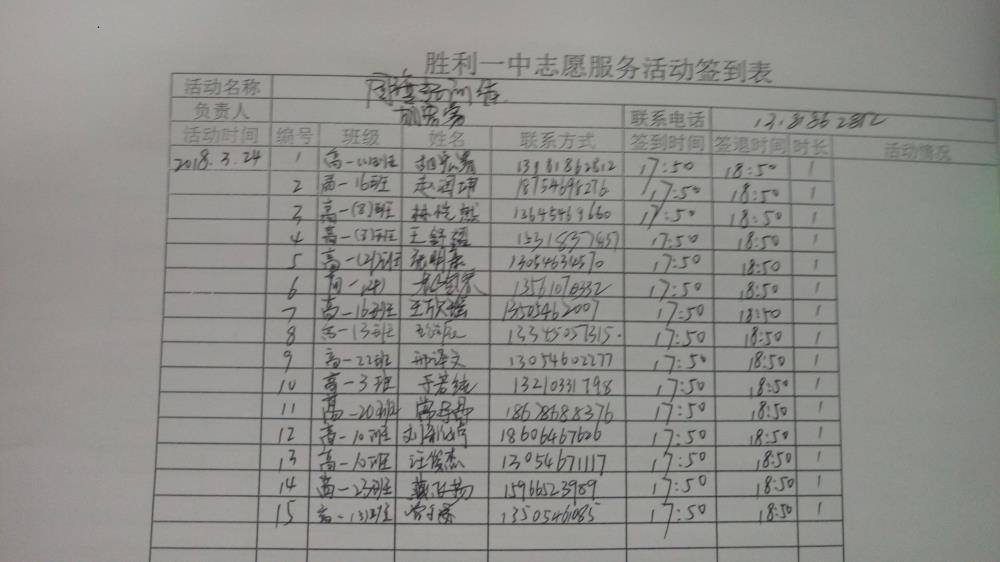 胜利一中志愿服务活动签到表
活动名称
负责人 联系电话 13181862812
活动时间 编号 班级 姓名 联系方式 签到时间 签退时间 时长 活动情况
2018.3.24 1 高一 班 13181862812 17:50 18:50 1
2 高一16班 赵润琦 18754698276 17:50 18:50 1
3 高一(8)班 林悦然 13645469660 17:50 18:50 1
4 高一(8)班 王舒蕴 17:50 18:50 1
5 高一(2)班 张明康 13054634570 17:50 18:50 1
6 高一 13561070332 17:50 18:50 1
7 高一16班 王欣瑶 13505462007 17:50 18:50 1
8 高一13班 13345057315 17:50 18:50 1
9 高一22班 邢译文 13054602277 17:50 18:50 1
10 高一3班 于若纯 13210331798 17:50 18:50 1
11 高一20班 18678688376 17:50 18:50 1
12 高一10班 18606467626 17:50 18:50 1
13 高一10班 汪俊杰 13054671117 17:50 18:50 1
14 高一23班 15966523989 17:50 18:50 1
15 高一 班 13505461085 17:50 18:50 1